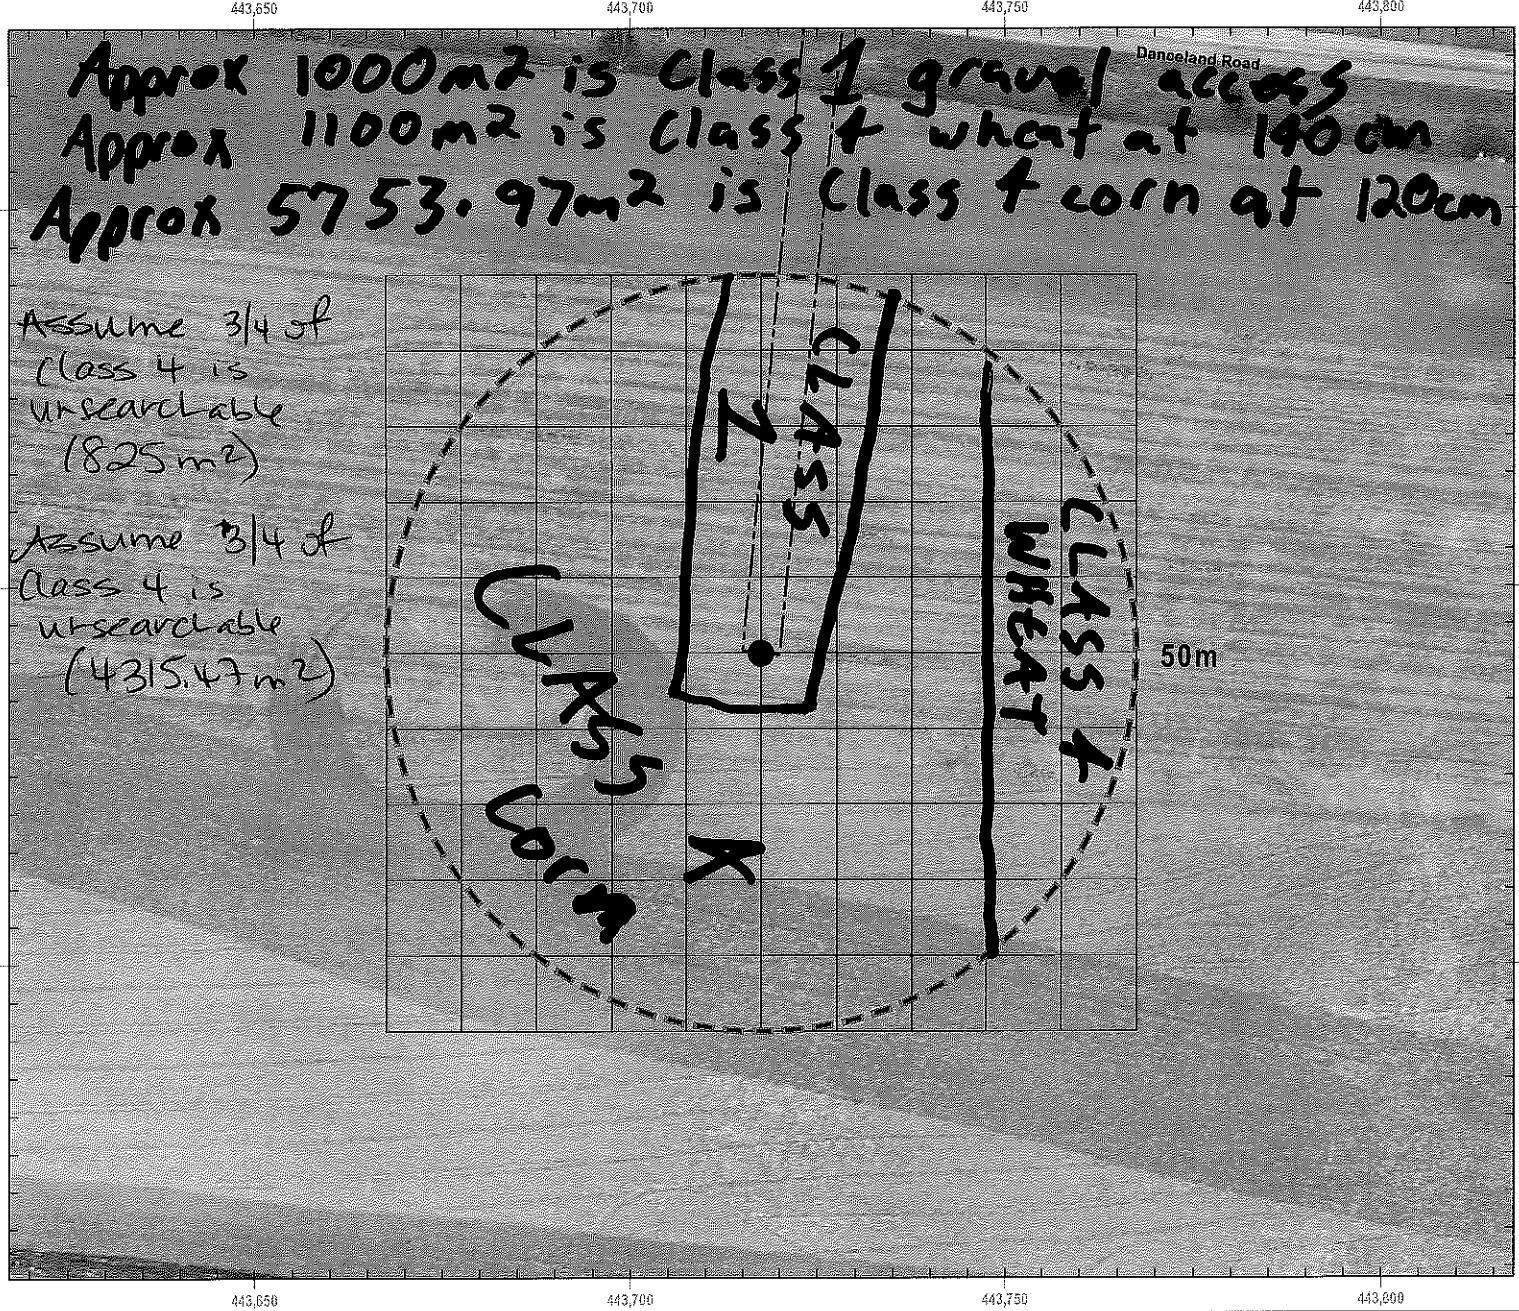 443,650 443,700 443,750 443,800
Danceland Road
Approx 1000m2 is Class 1 gravel access
Approx 1100m2 is Class 4 wheat at 140cm
Approx 5753.97m2 is Class 4 corn at 120cm
Assume 3/4 of
Class 4 is
unsearchable
(825m²)
Assume 3/4 of
Class 4 is
unsearchable
(4315.47m²)
CLASS
1
CLASS 4
WHEAT
50m
CLASS
4
Corn
443,650 443,700 443,750 443,800